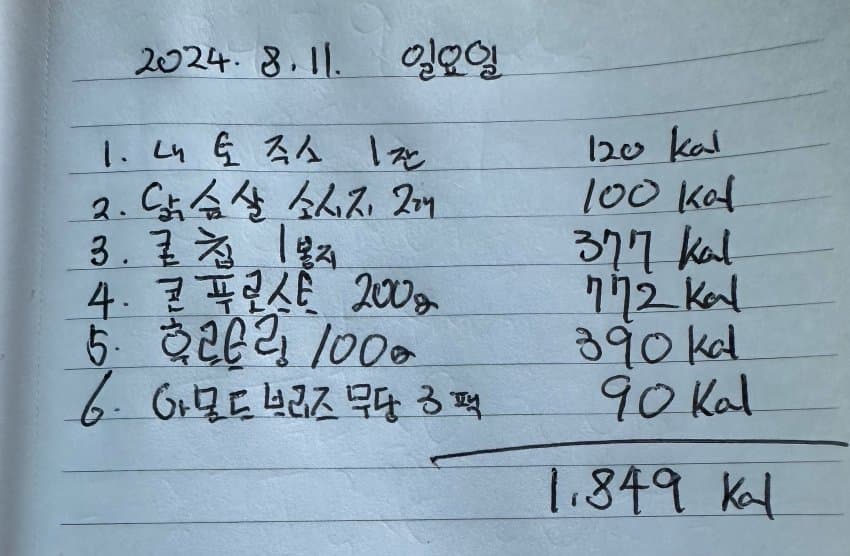 2024. 8. 11. 일요일
1. 내 토 주스 1잔 120 Kal
2. 닭슴살 소시지 2개 100 Kal
3. 콘칩 1봉지 377 Kal
4. 콘푸로스트 200g 772 Kal
5. 100g 390 Kal
6. 아몽드브리즈무당 3팩 90 Kal
1.849 Kal